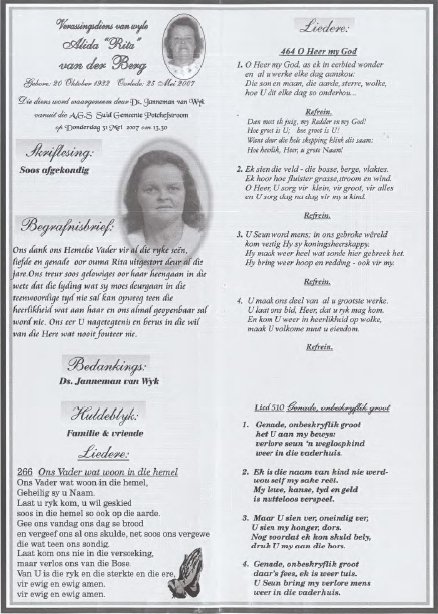 Verassingsdiens van wyle
Alida "Rita"
van der Berg
Gebore: 20 Oktober 1932 Oorlede: 25 Mei 2007
Die diens word waargeneem deur Ds. Janneman van Wyk
vanuit die A.G.S. Suid Gemeente Potchefstroom
op Donderdag 31 Mei 2007 om 13.30
Skriflesing:
Soos afgekondig
Begrafnisbrief:
Ons dank ons Hemelse Vader vir al die ryke seën,
liefde en genade oor ouma Rita uitgestort deur al die
jare.Ons treur soos gelowiges oor haar heengaan in die
wete dat die lyding wat sy moes deurgaan in die
teenwoordige tyd nie sal kan opweeg teen die
heerlikheid wat aan haar en ons almal geopenbaar sal
word nie. Ons eer U nagetegtenis en berus in die wil
van die Here wat nooit fouteer nie.
Bedankings:
Ds. Janneman van Wyk
Huldeblyk:
Familie & vriende
Liedere:
266 Ons Vader wat woon in die hemel
Ons Vader wat woon in die hemel,
Geheilig sy u Naam.
Laat u ryk kom, u wil geskied
soos in die hemel so ook op die aarde.
Gee ons vandag ons dag se brood
en vergeef ons al ons skulde, net soos ons vergewe
die wat teen ons sondig.
Laat kom ons nie in die versoeking,
maar verlos ons van die Bose.
Van U is die ryk en die sterkte en die ere,
vir ewig en ewig amen.
vir ewig en ewig amen.
Liedere:
464 O Heer my God
1. O Heer my God, as ek in eerbied wonder
en al u werke elke dag aanskou:
Die son en maan, die aarde, sterre, wolke,
hoe U dit elke dag so onderhou...
Refrein.
Dan moet ek juig, my Redder en my God!
Hoe groot is U; hoe groot is U!
Want deur die hele skepping klink dit saam:
Hoe heerlik, Heer, u grote Naam!
2. Ek sien die veld - die bosse, berge, vlaktes.
Ek hoor hoe fluister grasse,stroom en wind.
O Heer, U sorg vir klein, vir groot, vir alles
en U sorg dag na dag vir my u kind.
Refrein.
3. U Seun word mens; in ons gebroke wêreld
kom vestig Hy sy koningsheerskappy.
Hy maak weer heel wat sonde hier gebreek het.
Hy bring weer hoop en redding - ook vir my.
Refrein.
4. U maak ons deel van al u grootste werke.
U laat ons bid, Heer, dat u ryk mag kom.
En kom U weer in heerlikheid op wolke,
maak U volkome nuut u eiendom.
Refrein.
Lied 510 Genade, onbeskryflik groot
1. Genade, onbeskryflik groot
het U aan my bewys:
verlore seun 'n wegloopkind
weer in die vaderhuis.
2. Ek is die naam van kind nie werd-
wou self my sake reël.
My lewe, kanse, tyd en geld
is nutteloos verspeel.
3. Maar U sien ver, oneindig ver,
U sien my honger, dors.
Nog voordat ek kon skuld bely,
druk U my aan die bors.
4. Genade, onbeskryflik groot
daar's fees, ek is weer tuis.
U Seun bring my verlore mens
weer in die vaderhuis.